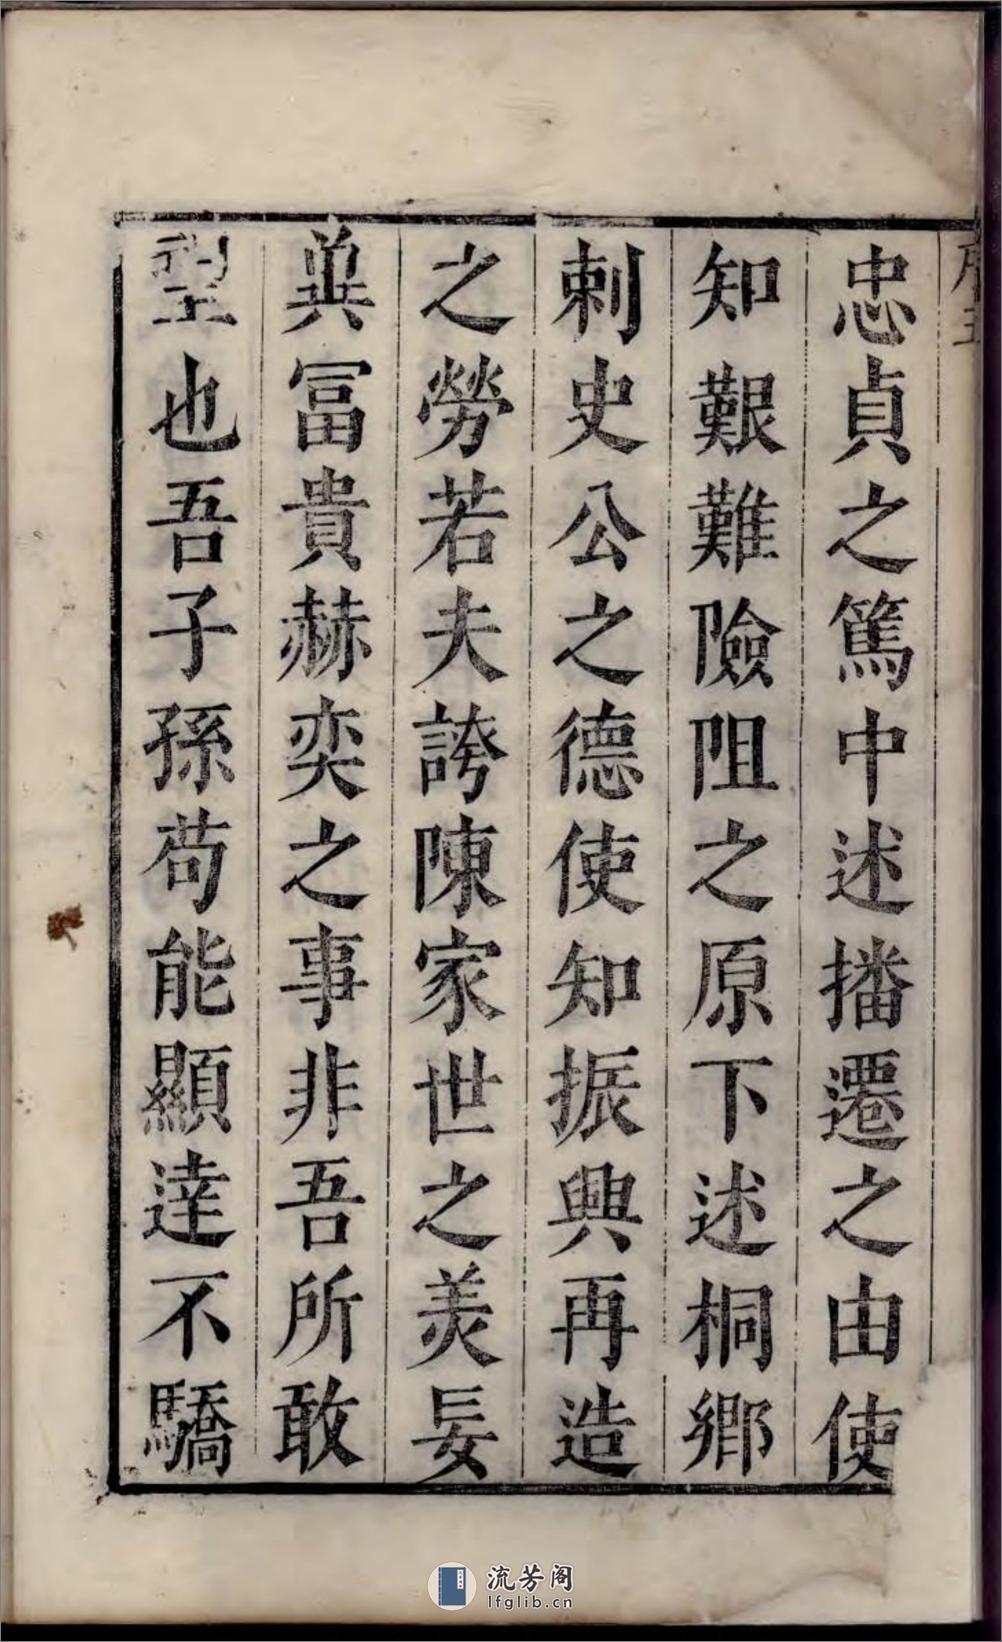 忠貞之篤中述播遷之由使
知艱難險阻之原下述桐鄉
刺史公之德使知振興再造
之勞若夫誇陳家世之美妄
冀冨貴赫奕之事非吾所敢
望也吾子孫苟能顯達不驕
流芳阁
lfglib.cn